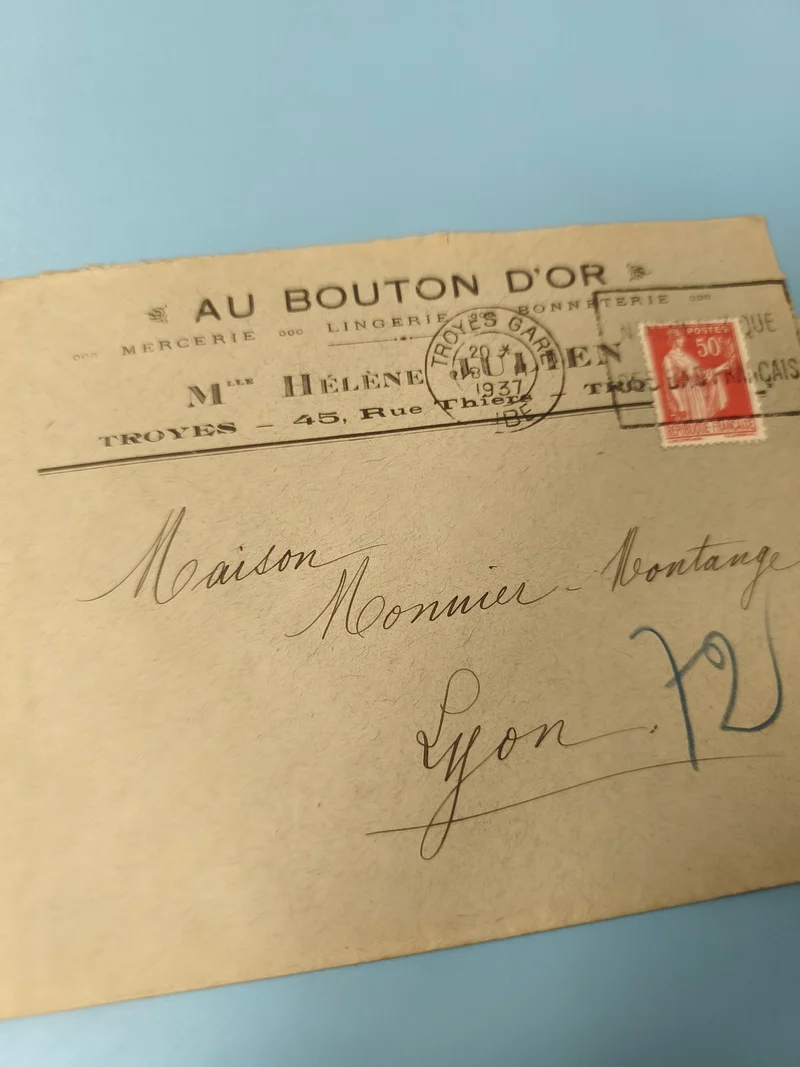 AU BOUTON D'OR
MERCERIE ooo LINGERIE ooo BONNETERIE ooo
MLLE HÉLÈNE JULIEN
TROYES - 45, Rue Thiers - TROYES
TROYES GARE
20
1937
AUBE
QUE
FRANÇAIS
POSTES
50c
REPUBLIQUE FRANÇAISE
Maison
Monnier - Montange
Lyon.
72